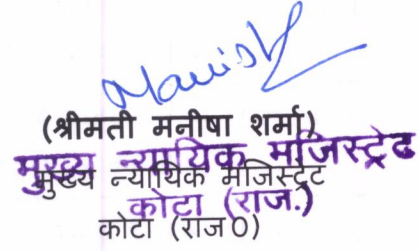 Manish
(श्रीमती मनीषा शर्मा)
मुख्य न्यायिक मजिस्ट्रेट
मुख्य न्यायिक मजिस्ट्रेट
कोटा (राज.)
कोटा (राज0)